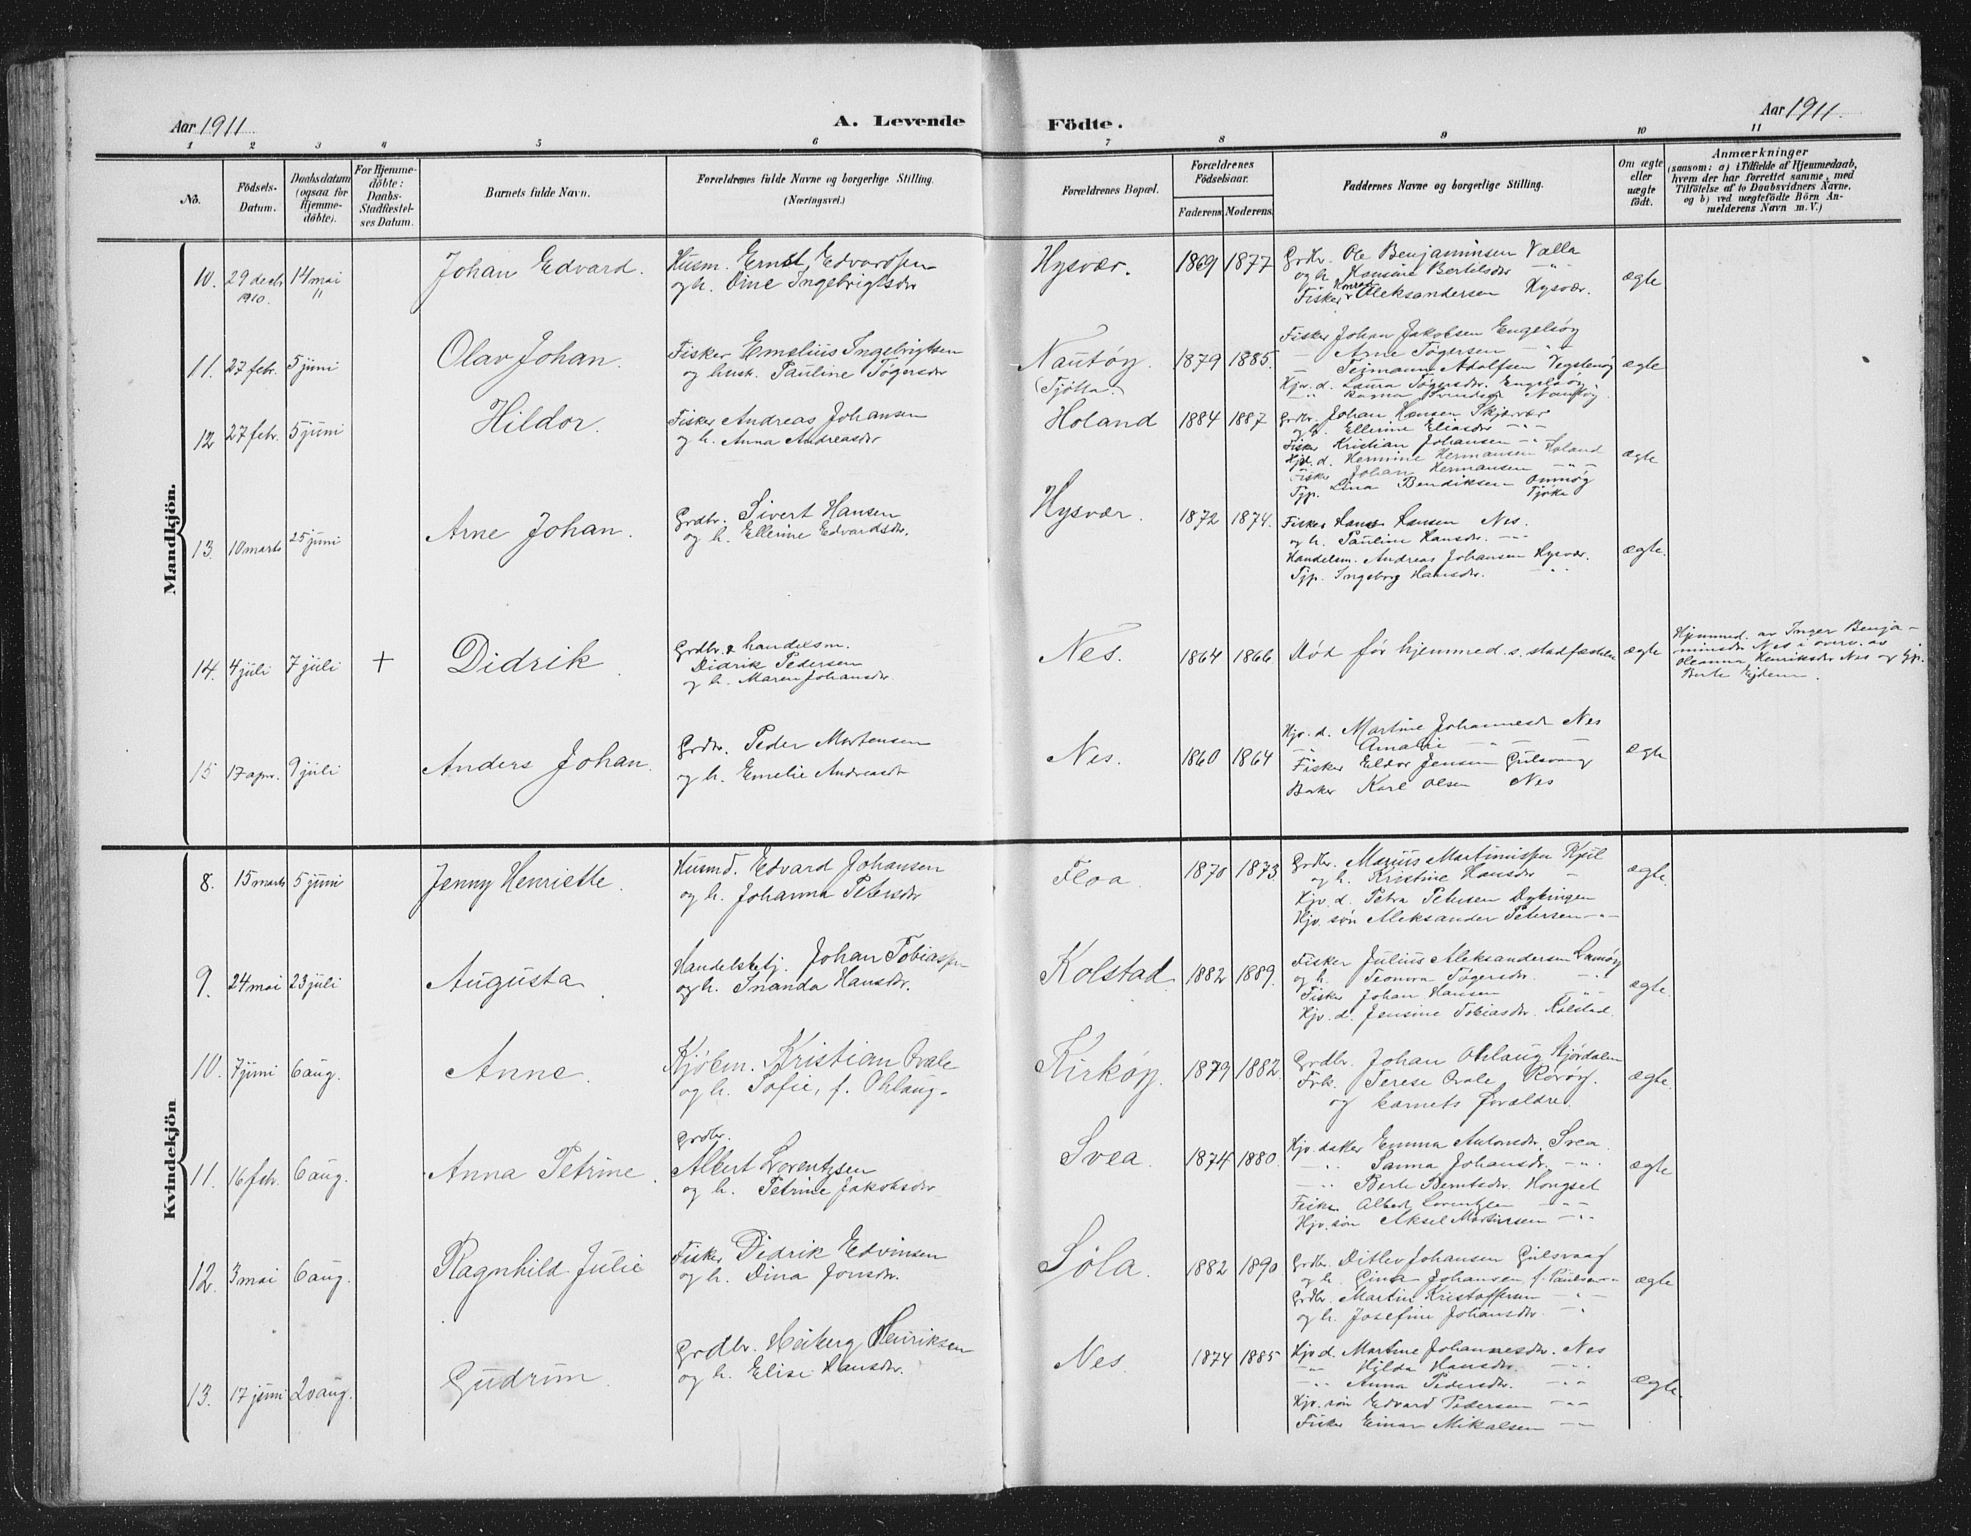 Aar 1911
A. Levende
Födte.
Aar 1911.
1 2 3 4 5 6 7 8 9 10 11
No.
Födsels-
Datum.
Daabsdatum
(ogsaa for
Hjemme-
döbte).
For Hjemme-
döbte:
Daabs-
Stadfæstel-
ses Datum.
Barnets fulde Navn.
Forældrenes fulde Navne og borgerlige Stilling.
(Næringsvei.)
Forældrenes Bopæl.
Forældrenes
Födselsaar.
Faderens. Moderens.
Faddernes Navne og borgerlig Stilling.
Om ægte
eller
uægte
födt.
Anmærkninger
(saasom: a) i Tilfælde af Hjemmedaab,
hvem der har forrettet samme, med
Tilföielse af to Daabsvidners Navne.
og b) ved uægtefödte Börn An-
melderens Navn m. V.)
Mandkjön.
10. 29 decbr 1910. 14 mai " Johan Edvard.
Husm. Ernst Edvardsen
og h. Orne Ingebrigtsdr
Hysvær. 1869 1877
Grdbr. Ole Benjaminsen Valla
og h. Hansine Bertelsdr -"-
Fisker Konrad Aleksandersen Hysvær.
ægte
11. 27 febr. 5 juni Olav Johan.
Fisker Emelius Ingebrigtsen
og hust. Pauline Tøgersdr
Nautöy.
(Tjötta)
1879 1885.
Fisker Johan Jakobsen Engelsøy
-"- Arne Tøgersen -"-
-"- Teimann Adolfsen Vegstenøy
Hjv. d. Laura Tøgersdr. Engelsöy.
-"- Ragna Nautöy.
ægte
12 27 febr. 5 juni Hildor.
Fisker Andreas Johansen
og h. Anna Andreasdr
Holand 1884 1887
Grdbr. Johan Hansen Skjærvær
og h. Ellerine Eliasdr -"-
Fisker Kristian Johansen -"-
Hjv. d. Hermine Hermansen Holand
Fisker Johan Hermansen -"-
Tjp. Lina Bendiksen Ommøy
Tjøtta
ægte
13. 10 marts 25 juni Arne Johan.
Grdbr. Sivert Hansen
og h. Ellerine Edvardsdr.
Hysvær. 1872 1874.
Fisker Hans Hansen Nes.
og h. Pauline Hansdr. -"-
Handelsm. Andreas Johansen Hysvær.
Tjp. Ingeborg Hansdr. -"-
ægte.
14. 4 juli 7 juli + Didrik.
Grdbr. & handelsm.
Didrik Pedersen
og h. Maren Johansdr
Nes. 1864 1866
Död før hjemmed.s. stadfæstelse ægte
Hjemmed. av Inger Benja-
minsdr Nes i overv. av
Oleanna Henriksdr Nes og tjp.
Berte Eidem.
15 17 apr. 9 juli Anders Johan.
Grdbr. Peder Mortensen
og h. Emelie Andreasdr
Nes. 1860 1864
Hjv. d. Martine Johannesdr Nes
-"- Amalie -"-
Fisker Eldor Jensen Gulsvaag
Baker Karl Olsen Nes
ægte
Kvindekjön
8. 15 marts 5 juni Jenny Henriette.
Husmd. Edvard Johansen
og h. Johanna Petersdr
Floa. 1870 1873
Grdbr. Marius Martinussen Kjul
og h. Kristine Hansdr -"-
Hjv. d. Petra Petersen Dykingen
Hjv. søn Aleksander Petersen -"-
ægte.
9. 24 mai 23 juli Augusta.
Handelsbetj. Johan Tobiassen
og h. Inanda Hansdr.
Kolstad 1882 1889.
Fisker Julius Aleksandersen
og h. Teonora Tøgersdr. -"-
Fisker Johan Hansen -"-
Hjv. d. Jensine Tobiasdr. Kolstad.
ægte.
10. 7 juni 6 aug. Anne.
Kjöbm. Kristian Qvale
og h. Sofie, f. Ohlaug-
Kirköy. 1879 1882.
Grdbr. Johan Ohlaug Hjördalen
Frk. Terese Qvale, Rorøy.
og barnets forældre.
ægte.
11. 16 feb. 6 aug. Anna Petrine.
Grdbr.
Albert Lorentzsen
og h. Petrine Jakobsdr
Svea. 1874 1880.
Hjv. datter Emma Antonsdr. Svea
-"- Sanna Johansdr. -"-
-"- Berte Berntsdr. Hongset
Fisker Albert Lorentzen -"-
Hjv. søn Aksel Martinsen -"-
ægte
12. 3 mai 6 aug. Ragnhild Julie
Fisker Didrik Edvinsen
og h. Dina Jonsdr.
Sola. 1882 1890
Grdbr. Ditlev Johansen Gulsvaag
og h. Gina Johansen, f. Paulsen -"-
Grdbr. Martin Kristoffersen -"-
og h. Josefine Johansdr. -"-
ægte
13. 17 juni 20 aug. Gudrun.
Grdbr. Heiberg Henriksen
og h. Elise Hansdr.
Nes. 1874 1885
Hjv d. Martine Johannesdr. Nes
-"- Hilda Hansdr. -"-
-"- Anna Pedersdr. -"-
Hjv. søn Edvard Pedersen -"-
Fisker Einar Mikalsen -"-
ægte.